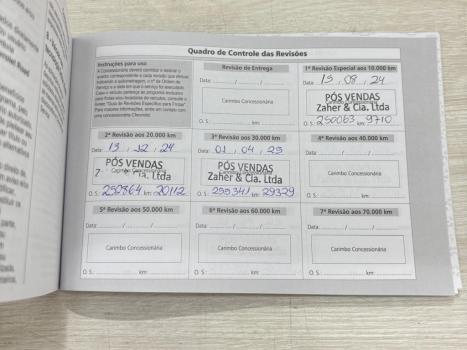 Quadro de Controle das Revisões
Instruções para uso
A Concessionária deverá carimbar e assinar o
quadro correspondente a cada revisão que efetuar,
indicando a quilometragem, o nº da Ordem de
Serviço e a data em que o serviço foi executado.
Caso o veículo pertença ao programa exclusivo
para frotas e/ou locadoras de veículos, consulte o
livreto "Guia de Revisões Específico para Frotas".
Para maiores informações, entre em contato com
uma concessionária Chevrolet.
Revisão de Entrega
Data: / /
Carimbo Concessionária
O. S.: km:
1ª Revisão Especial aos 10.000 km
Data: 15, 08, 24
PÓS VENDAS
Zaher & Cia. Ltda
O. S.: 250063 9710
2ª Revisão aos 20.000 km
Data: 13, 12, 24
PÓS VENDAS
Ltda
O. S.: 250864 km: 20112
3ª Revisão aos 30.000 km
Data: 01, 04, 25
PÓS VENDAS
Zaher & Cia. Ltda
O. S.: km: 29329
4ª Revisão aos 40.000 km
Data: / /
Carimbo Concessionária
O. S.: km:
5ª Revisão aos 50.000 km
Data: / /
Carimbo Concessionária
O. S.: km:
6ª Revisão aos 60.000 km
Data: / /
Carimbo Concessionária
O. S.: km:
7ª Revisão aos 70.000 km
Data: / /
Carimbo Concessionária
O. S.: km: